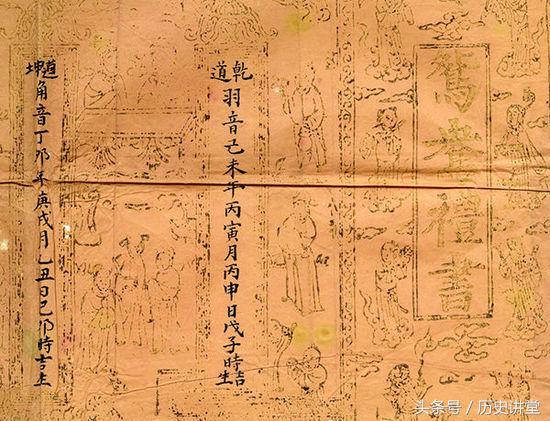 禮書
乾道
羽音己未年丙寅月丙申日戊子時吉生
坤道
角音丁卯年庚戌月乙丑日己卯時吉生
头条号/历史讲堂